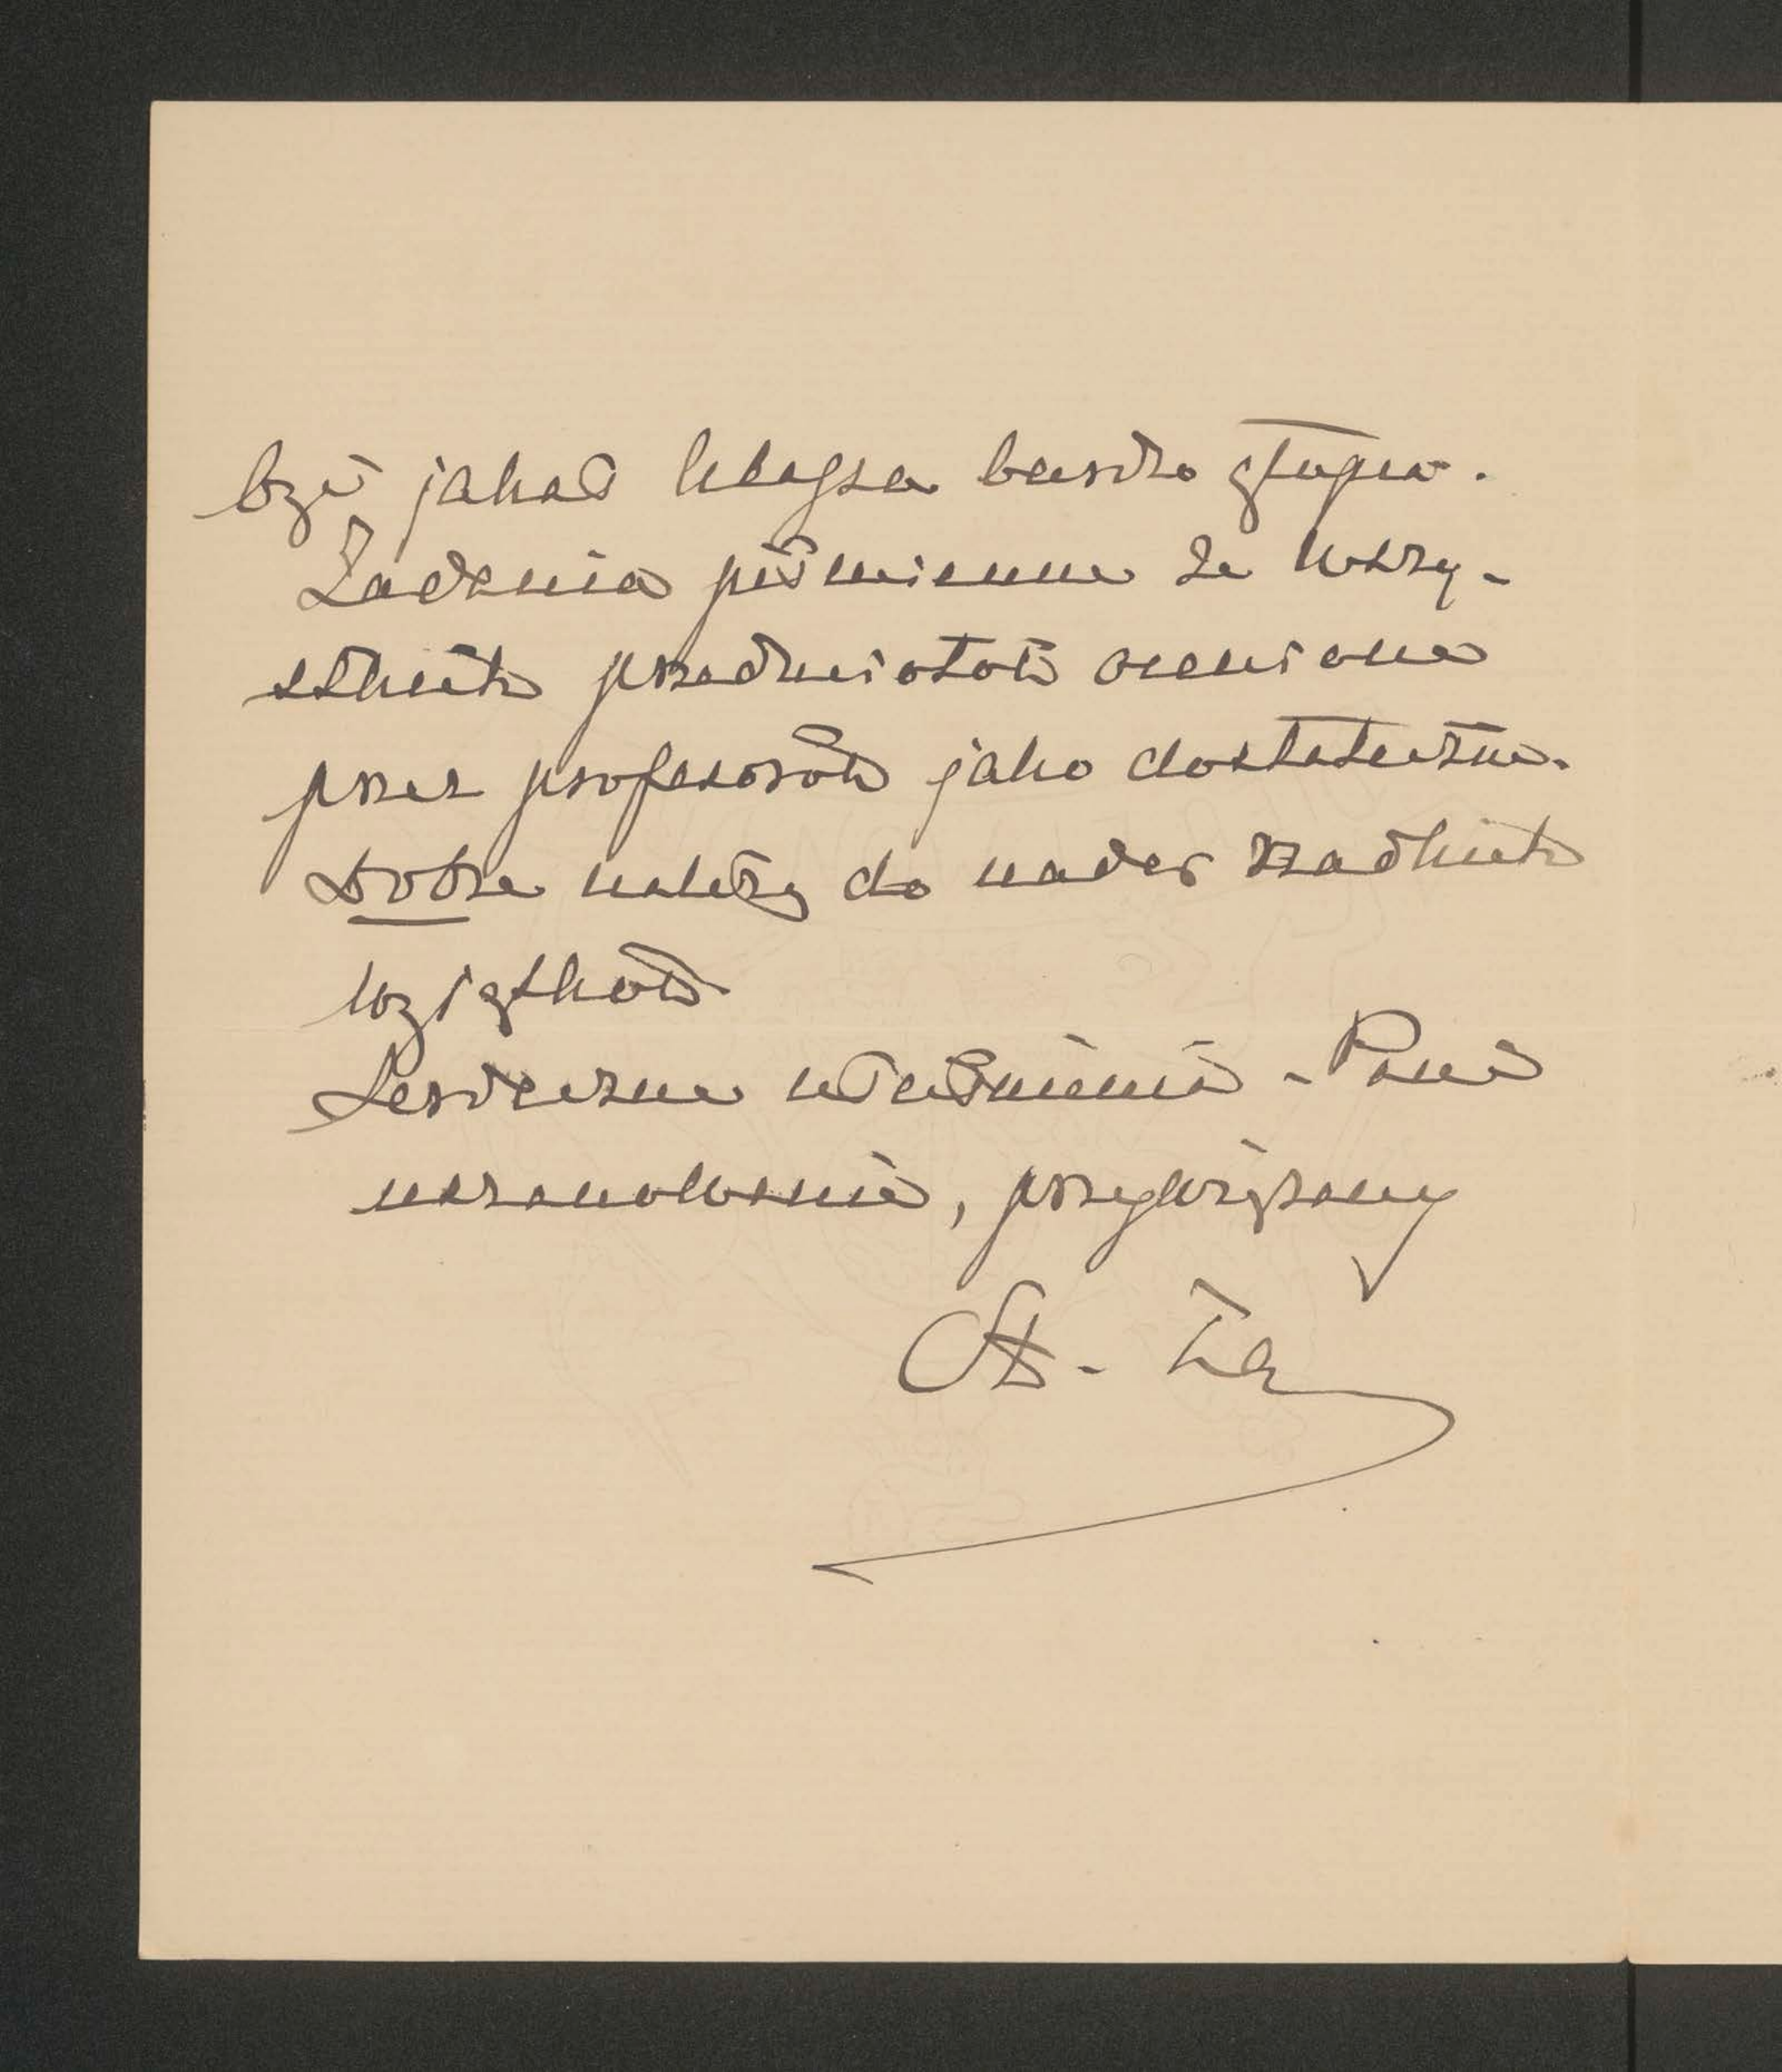 być jakaś klasa bardzo głupia.
Zadania piśmienne ze wszy-
stkich przedmiotów ocenione
przez profesorów jako dostateczne.
Dobre należą do nader rzadkich
wyjątków
Serdeczne uściśnienia - Pani
uszanowania, przywiązany
St.